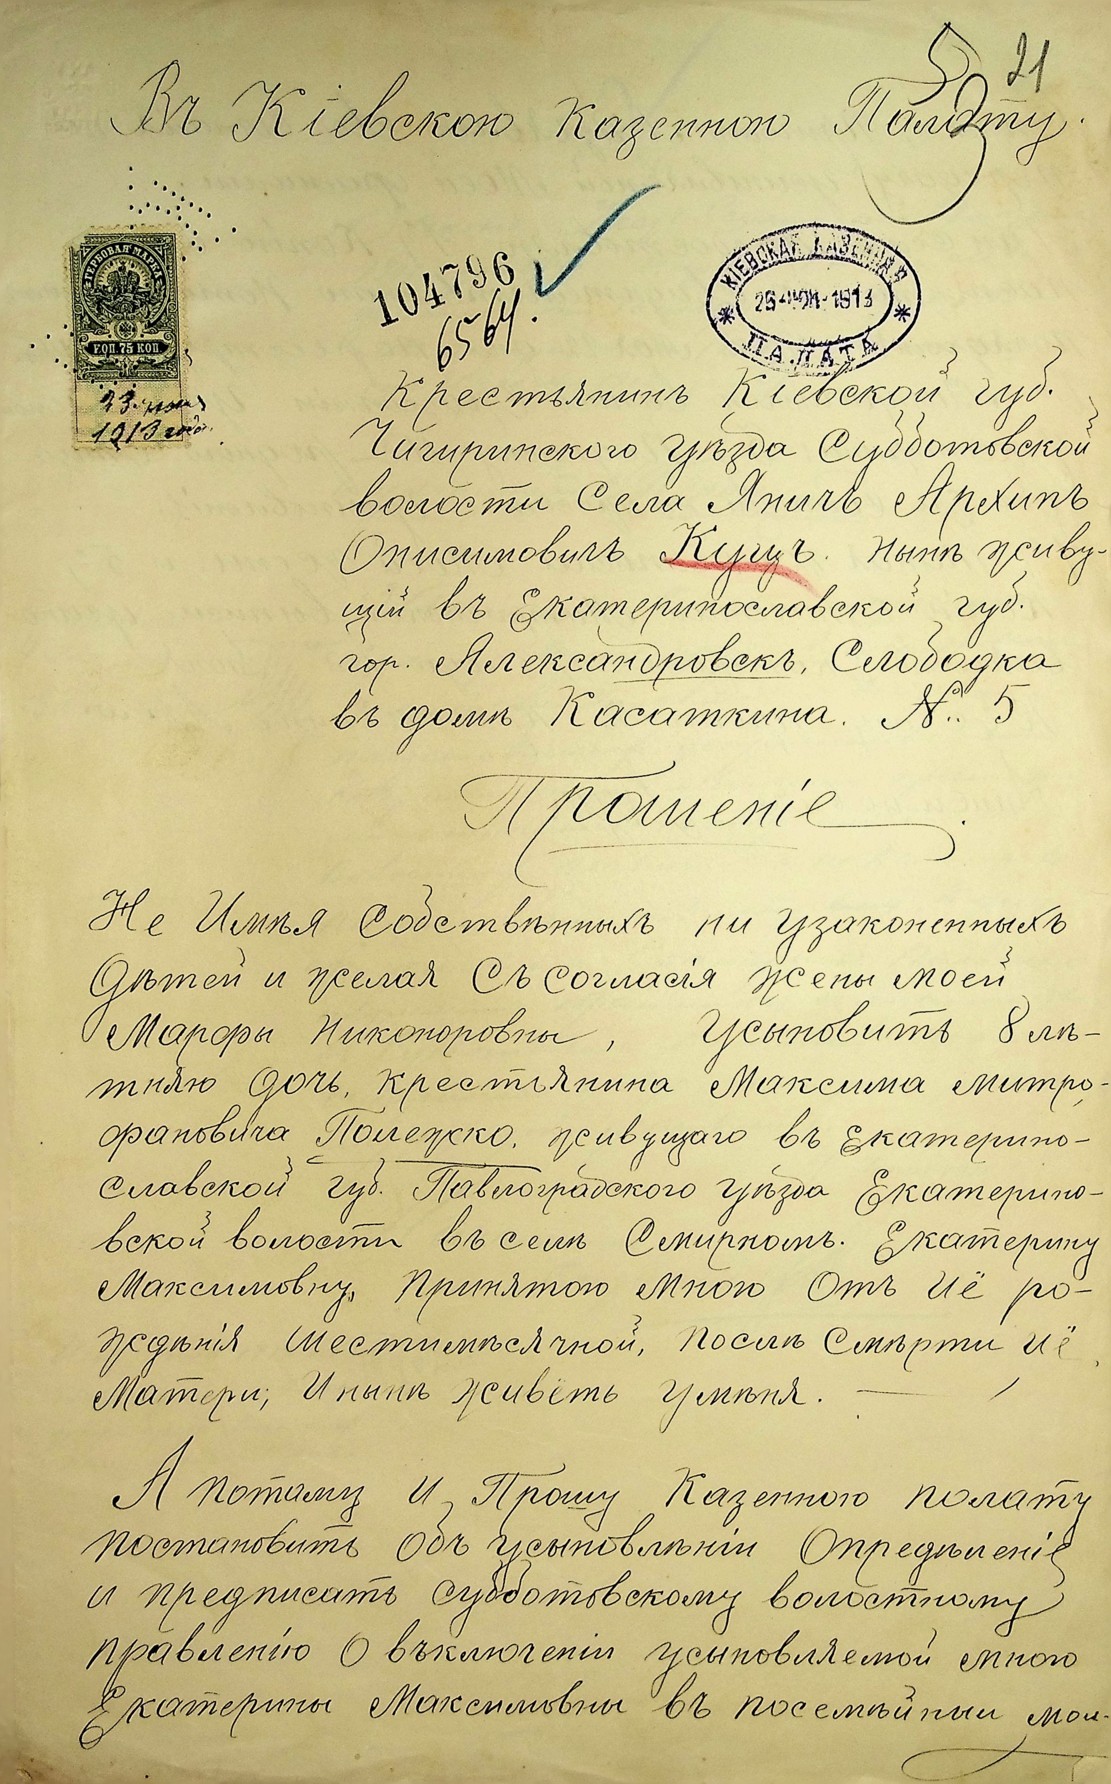 21
Въ Кіевскою Казенною Палату.
ГЕРБОВАЯ МАРКА
75 КОП.
23. іюня
1913 года.
104796
6564.
КІЕВСКАЯ КАЗЕННАЯ
1913
ПАЛАТА
Крестьянинъ Кіевской губ.
Чигиринского уѣзда Субботовской
волости Села Яничъ Архипъ
Онисимовичъ Кущъ. нынѣ живу-
щій въ Екатеринославской губ.
гор. Александровскъ, Слободка
въ домѣ Касаткина. № 5
Прошеніе.
Не Имѣя Собствѣнныхъ ни узаконенныхъ
дѣтей и желая Съ согласія жены моей
Марфы Никоноровны, Усыновить 8 лѣ-
тнюю дочь, крестьянина Максима митро-
фановича Полежско, живущаго въ Екатерино-
славской губ. Павлоградского уѣзда Екатерино-
вской волости въ селѣ Смирномъ. Екатерину
Максимовну, принятою мною отъ её ро-
ждѣнія шестимѣсячной, послѣ Смѣрти её
Матери, и нынѣ живѣть умѣня.
А потому и Прошу Казенною полату
постановить объ усыновлѣніи Опредѣленіе
и предписать субботовскому волостному
правленію о въключеніи усыновляемой мною
Екатерины Максимовны въ посемѣйный мой-